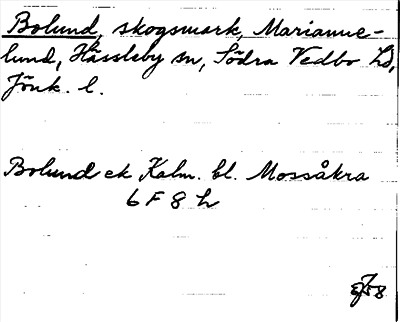 Bolund, skogsmark, Marianne-
lund, Hässleby sn, Södra Vedbo hd,
Jönk. l.
Bolund ek Kalm. bl. Mossåkra
6 F 8 h